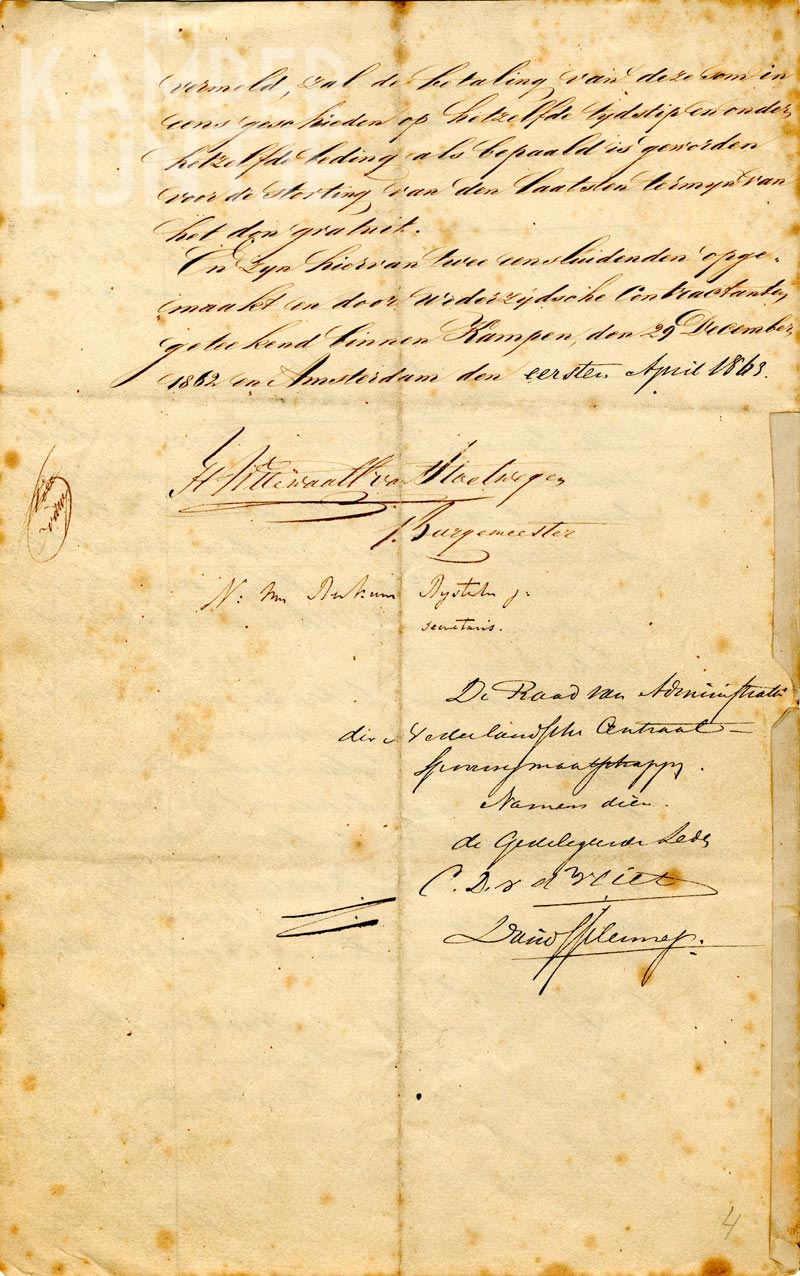 HET
KAMPER
LIJNTJE
vermeld, zal de betaling van deze som in
eens geschieden op hetzelfde tydstip en onder
hetzelfde beding als bepaald is geworden
voor de storting van den laatsten termyn van
het don gratuit.
En zyn hiervan twee eensluidenden opge-
maakt en door wederzydsche Contractanten
geteekend binnen Kampen, den 29 December
1862 en Amsterdam den eersten April 1863.
H Wttewaall van Stoetwegen
Burgemeester
N: van Berkum Bysterbos jr
secretaris.
De Raad van Administratie
der Nederlandsche Centraal
Spoorwegmaatschappy.
Namens dien
de Gedelegeerde Leden
C. D. v d Vliet
4